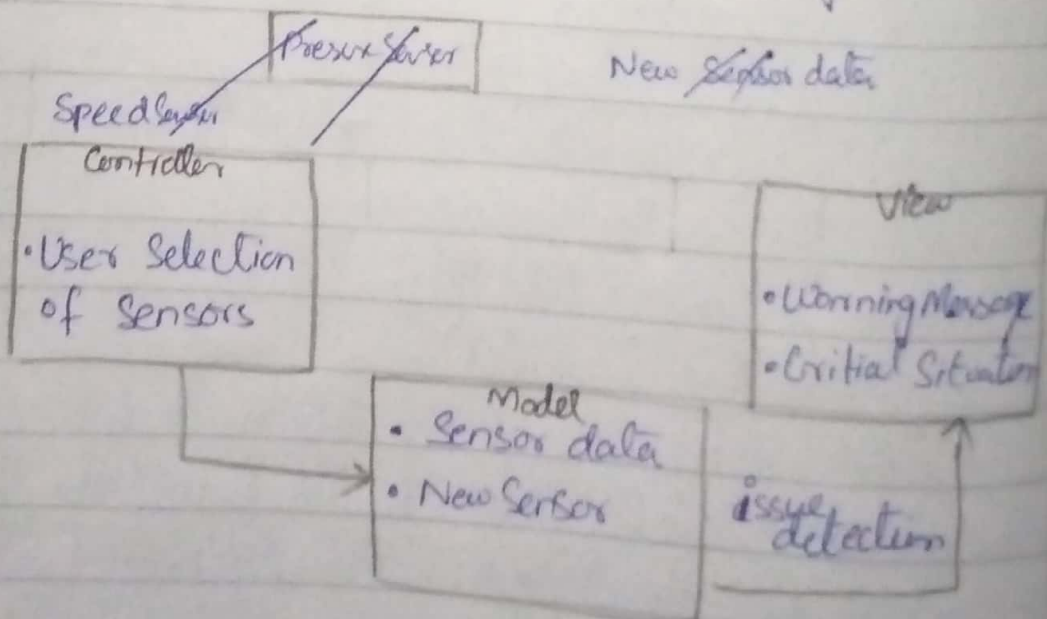 Presux Senser
New Sensor data
Speed Senser
Controller
• User Selection
of Sensors
View
• Worning Message
• Critial Situation
Model
• Sensor data
• New Sensor
issue
detection